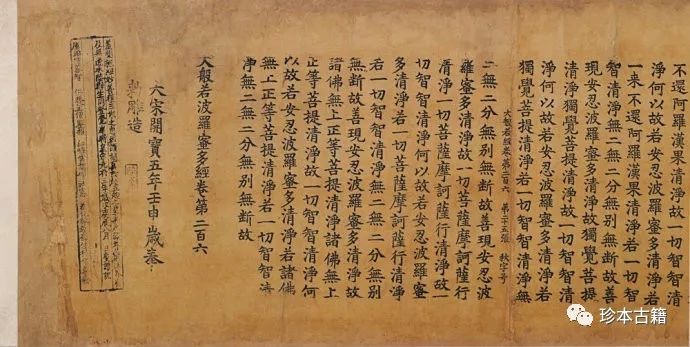 不還阿羅漢果清淨故一切智智清
淨何以故若安忍波羅蜜多清淨若
一來不還阿羅漢果清淨若一切智
智清淨無二無二分無別無斷故善
現安忍波羅蜜多清淨故獨覺菩提
清淨獨覺菩提清淨故一切智智清
淨何以故若安忍波羅蜜多清淨若
獨覺菩提清淨若一切智智清淨無
大般若經卷第二百六 第十五張 秋字号
二無二分無別無斷故善現安忍波
羅蜜多清淨故一切菩薩摩訶薩行
清淨一切菩薩摩訶薩行清淨故一
切智智清淨何以故若安忍波羅蜜
多清淨若一切菩薩摩訶薩行清淨
若一切智智清淨無二無二分無別
無斷故善現安忍波羅蜜多清淨故
諸佛無上正等菩提清淨諸佛無上
正等菩提清淨故一切智智清淨何
以故若安忍波羅蜜多清淨若諸佛
無上正等菩提清淨若一切智智清
淨無二無二分無別無斷故
大般若波羅蜜多經卷第二百六
大宋開寶五年壬申歲奉
勑雕造
珍本古籍